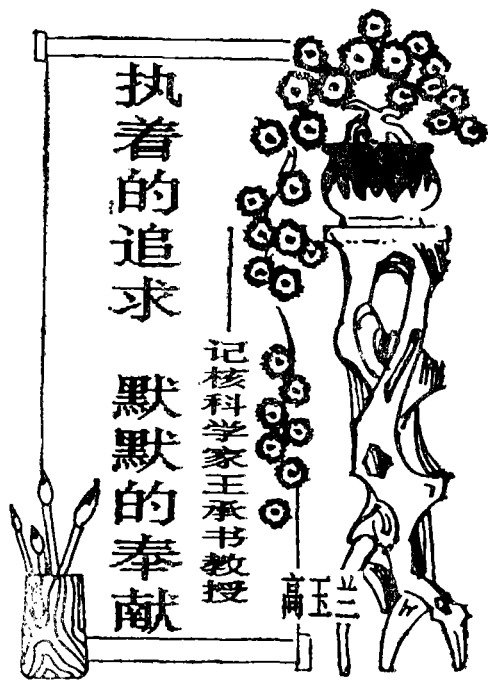 执着的追求 默默的奉献
——记核科学家王承书教授
高玉兰